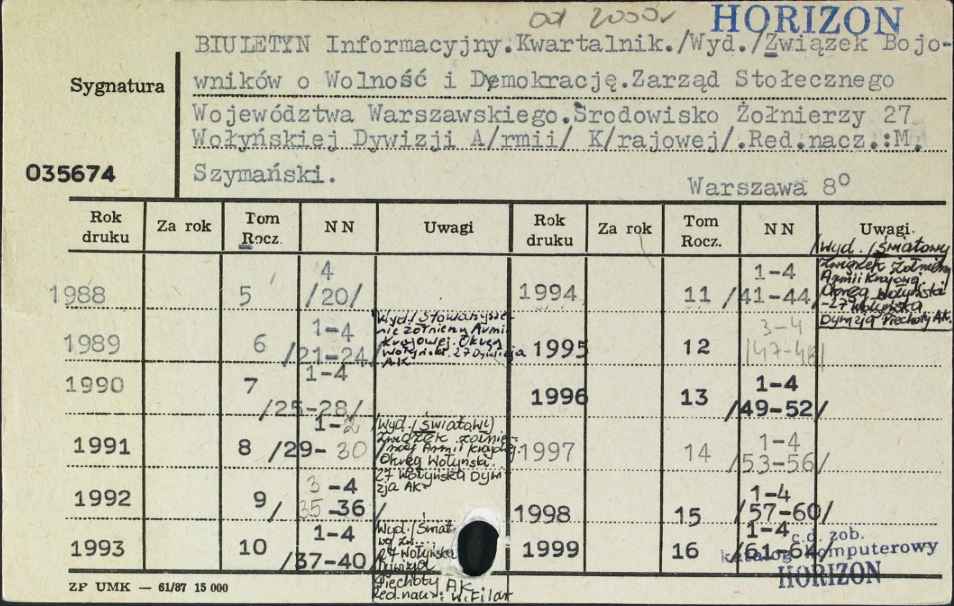 od 2000r HORIZON
BIULETYN Informacyjny.Kwartalnik./Wyd./Związek Bojo-
wników o Wolność i Demokrację.Zarząd Stołecznego
Województwa Warszawskiego.Środowisko Żołnierzy 27
Wołyńskiej Dywizji A/rmii/ K/rajowej/.Red.nacz.:M.
Szymański.
Warszawa 8°
Sygnatura
035674
Rok druku Za rok Tom Rocz. NN Uwagi Rok druku Za rok Tom Rocz. NN Uwagi
1988 5 4 /20/
1989 6 1-4 /21-24/ Wyd./Stowarzysze-
nie Żołnierzy Armii
Krajowej. Okręg
Wołyński. 27 Dywizja
AK.
1990 7 1-4 /25-28/
1991 8 1-2 /29-30 Wyd./Światowy
Związek Żołnie-
rzy Armii Krajowej.
Okręg Wołyński.
27 Wołyńska Dywi
zja AK.
1992 9 3-4 /35-36/
1993 10 1-4 /37-40/ Wyd./Świat
27 Wołyńska
Dywizja
Piechoty AK.
Red.nacz.: W.Filar
1994 11 1-4 /41-44/ /Wyd./Światowy
Związek Żołnierzy
Armii Krajowej
Okręg Wołyński
-27 Wołyńska
Dywizja Piechoty AK.
1995 12 3-4 /47-48/
1996 13 1-4 /49-52/
1997 14 1-4 /53-56/
1998 15 1-4 /57-60/
1999 16 1-4 /61-64/
c.d. zob.
katalog komputerowy
HORIZON
ZP UMK — 61/87 15 000